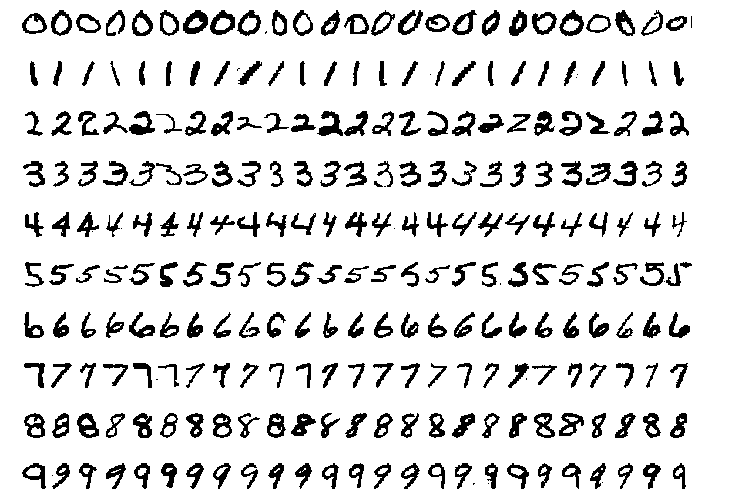 0000000000000000000000000
1111111111111111111111111
2222222222222222222222222
3333333333333333333333333
4444444444444444444444444
5555555555555555555555555
6666666666666666666666666
7777777777777777777777777
8888888888888888888888888
9999999999999999999999999